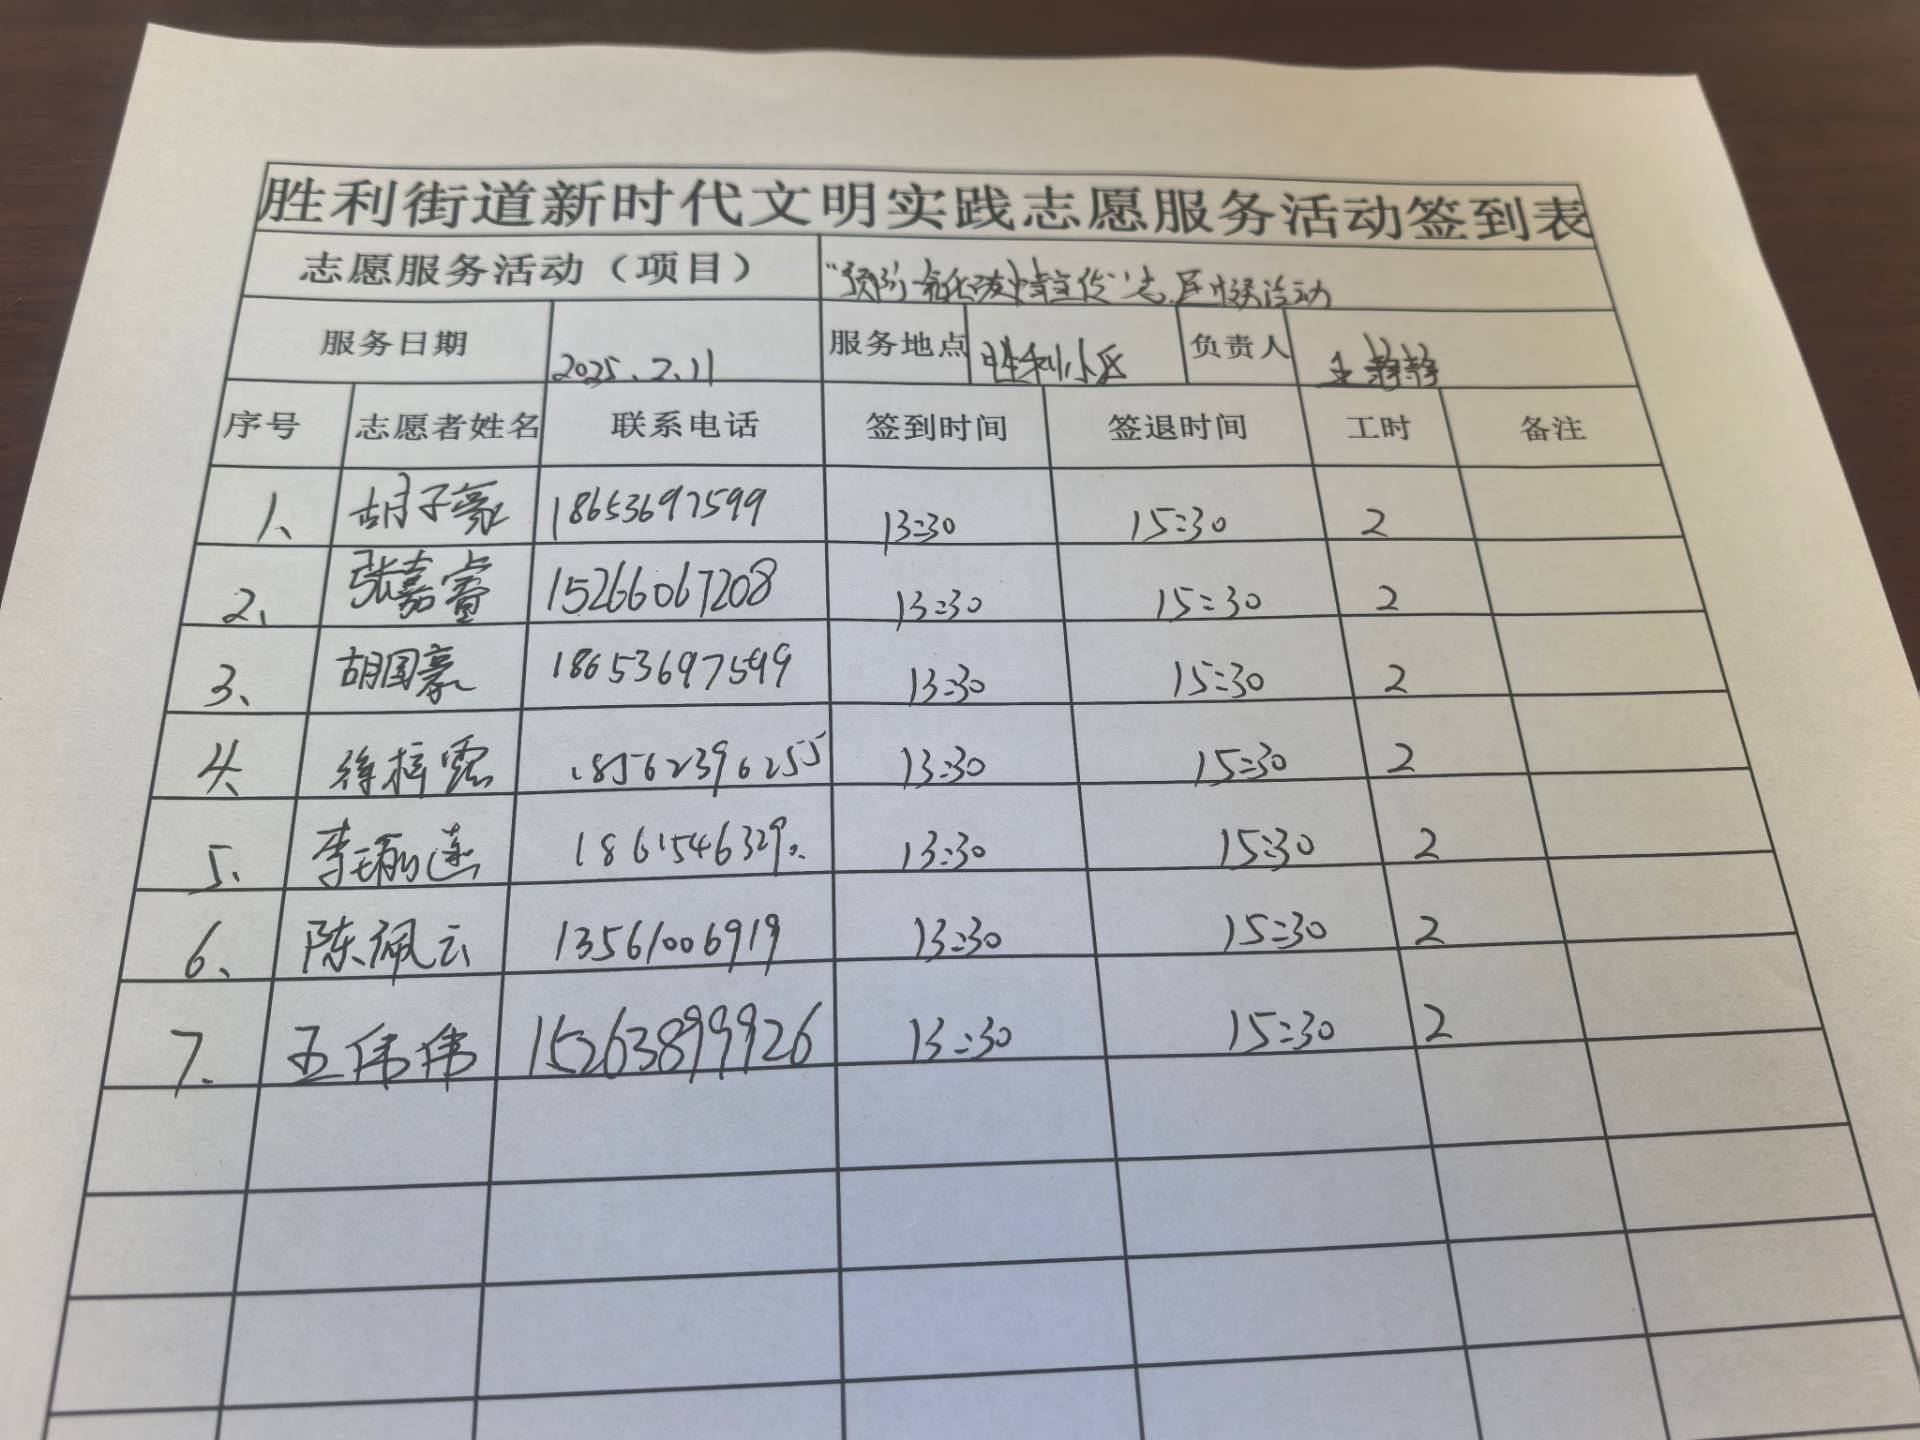 胜利街道新时代文明实践志愿服务活动签到表
志愿服务活动（项目） “预防一氧化碳中毒宣传”志愿服务活动
服务日期 2025.2.11 服务地点 胜利小区 负责人 王静静
序号 志愿者姓名 联系电话 签到时间 签退时间 工时 备注
1、 胡子豪 18653697599 13:30 15:30 2
2、 张嘉睿 15266067208 13:30 15:30 2
3、 胡国豪 18653697599 13:30 15:30 2
4、 徐梓露 18562396255 13:30 15:30 2
5、 李 13:30 15:30 2
6、 陈佩云 13561006919 13:30 15:30 2
7. 王伟伟 15263899926 13:30 15:30 2